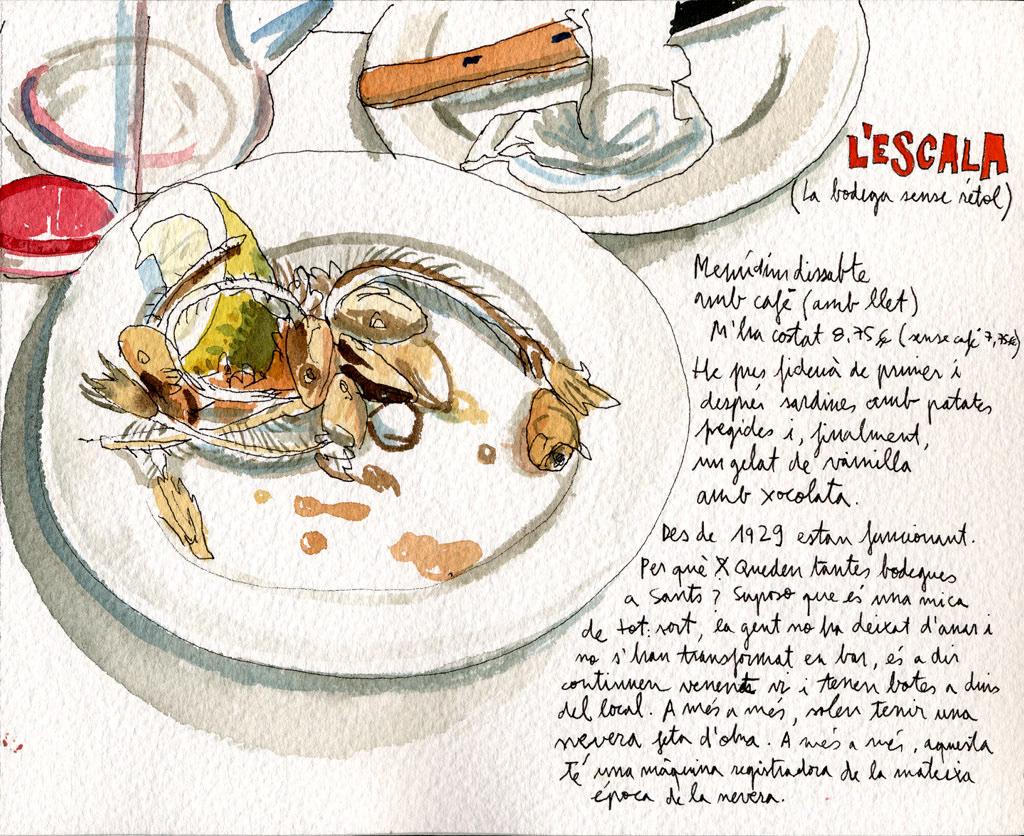 L'ESCALA
(La bodega sense rètol)
Menú dim dissabte
amb cafè (amb llet)
M'ha costat 8,75€ (sense café 7,75€)
He pres fideuà de primer i
després sardines amb patates
fregides i, finalment,
un gelat de vainilla
amb xocolata.
Des de 1929 estan funcionant.
Per què X Queden tantes bodegues
a Sants? Suposo que és una mica
de tot: sort, la gent no ha deixat d'anar i
no s'han transformat en bar, és a dir
continuen venent vi i tenen botes a dins
del local. A més a més, solen tenir una
nevera feta d'obra. A més a més, aquesta
té una màquina registradora de la mateixa
època de la nevera.